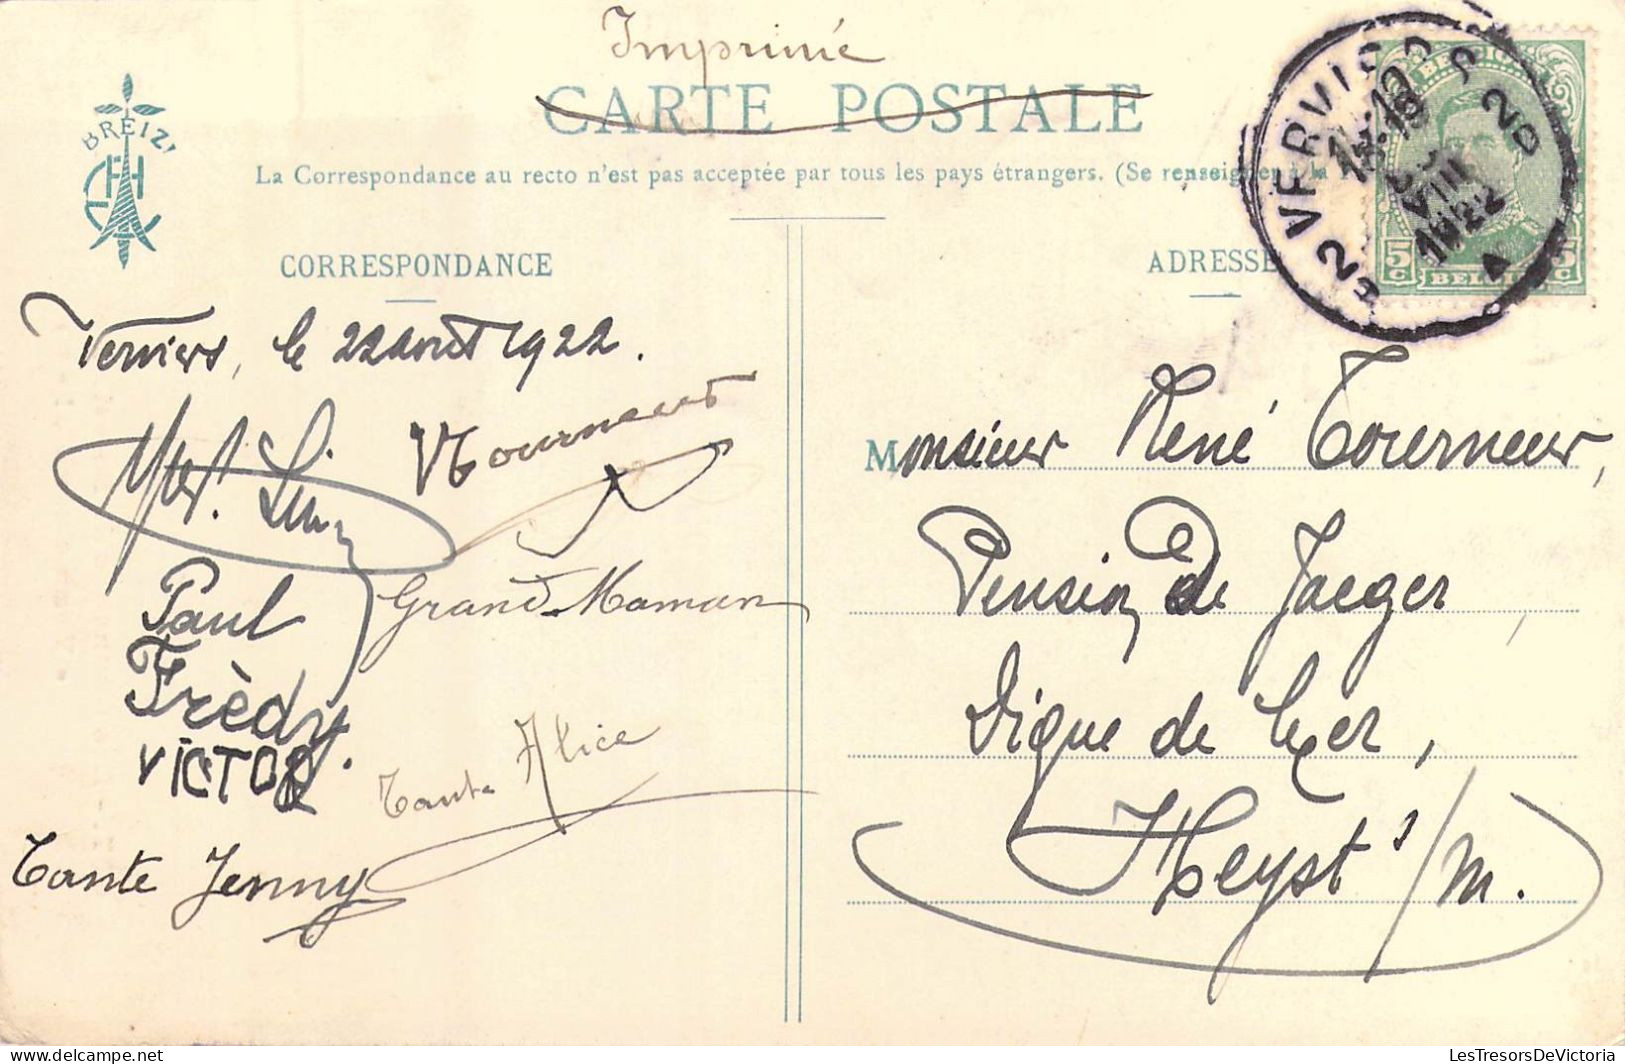 Imprimé
CARTE POSTALE
BREIZ
La Correspondance au recto n'est pas acceptée par tous les pays étrangers. (Se renseigner à la
CORRESPONDANCE
ADRESSE
BELGIQUE
5c
5c
VERVIERS
2
VIII
1922
Verviers, le 22 août 1922.
Tourneur
Paul
Grand-Maman
Frèdy.
VICTOR
Tante Alice
Tante Jenny
Monsieur René Tourneur,
Pension de Jaeger,
Digue de Mer,
Heyst s/m.
LesTresorsDeVictoria
delcampe.net